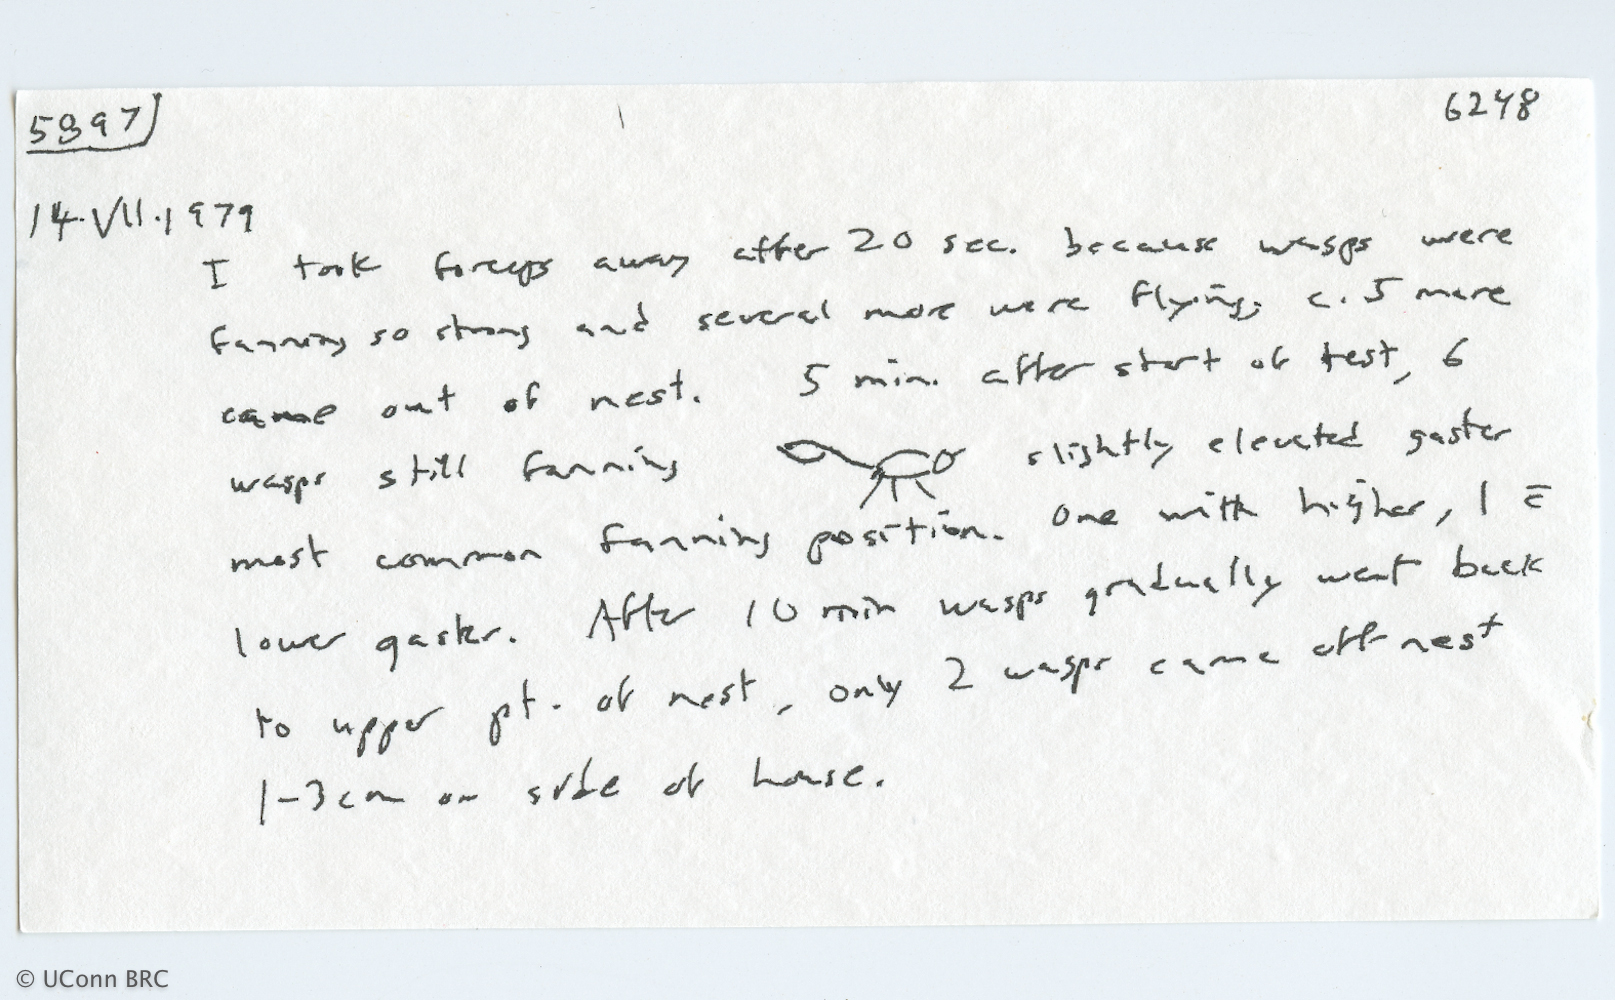 5897
6248
14.VII.1979
I took forceps away after 20 sec. because wasps were
fanning so strong and several more were flying, c. 5 more
came out of nest. 5 min. after start of test, 6
wasps still fanning slightly elevated gaster
most common fanning position. One with higher, 1 c̄
lower gaster. After 10 min wasps gradually went back
to upper pt. of nest, only 2 wasps came off nest
1-3cm on side of house.
© UConn BRC